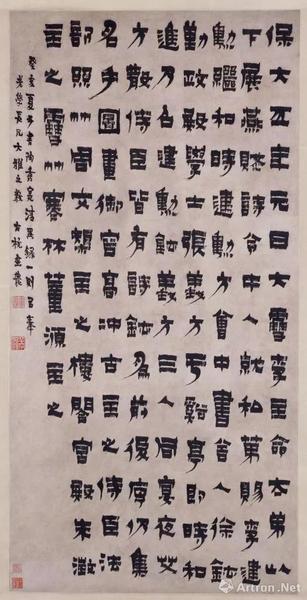 保大元日大雪李主命太弟以
下展燕賦詩命中人就私第賜李建
勳繼和時建勳方會中書舍人徐鉉
勤政殿學士張義方于谿亭即時和
進乃召建勳鉉義方三人同宴夜艾
方散侍臣皆有詩鉉為前後序仍集
名手圖畫御容高沖古主之侍臣法
部絲竹周文榘主之樓閣宮殿朱澂
主之雪竹寒林董源主之
癸亥夏五書清異録一則
學長兄大雅之教 古杭